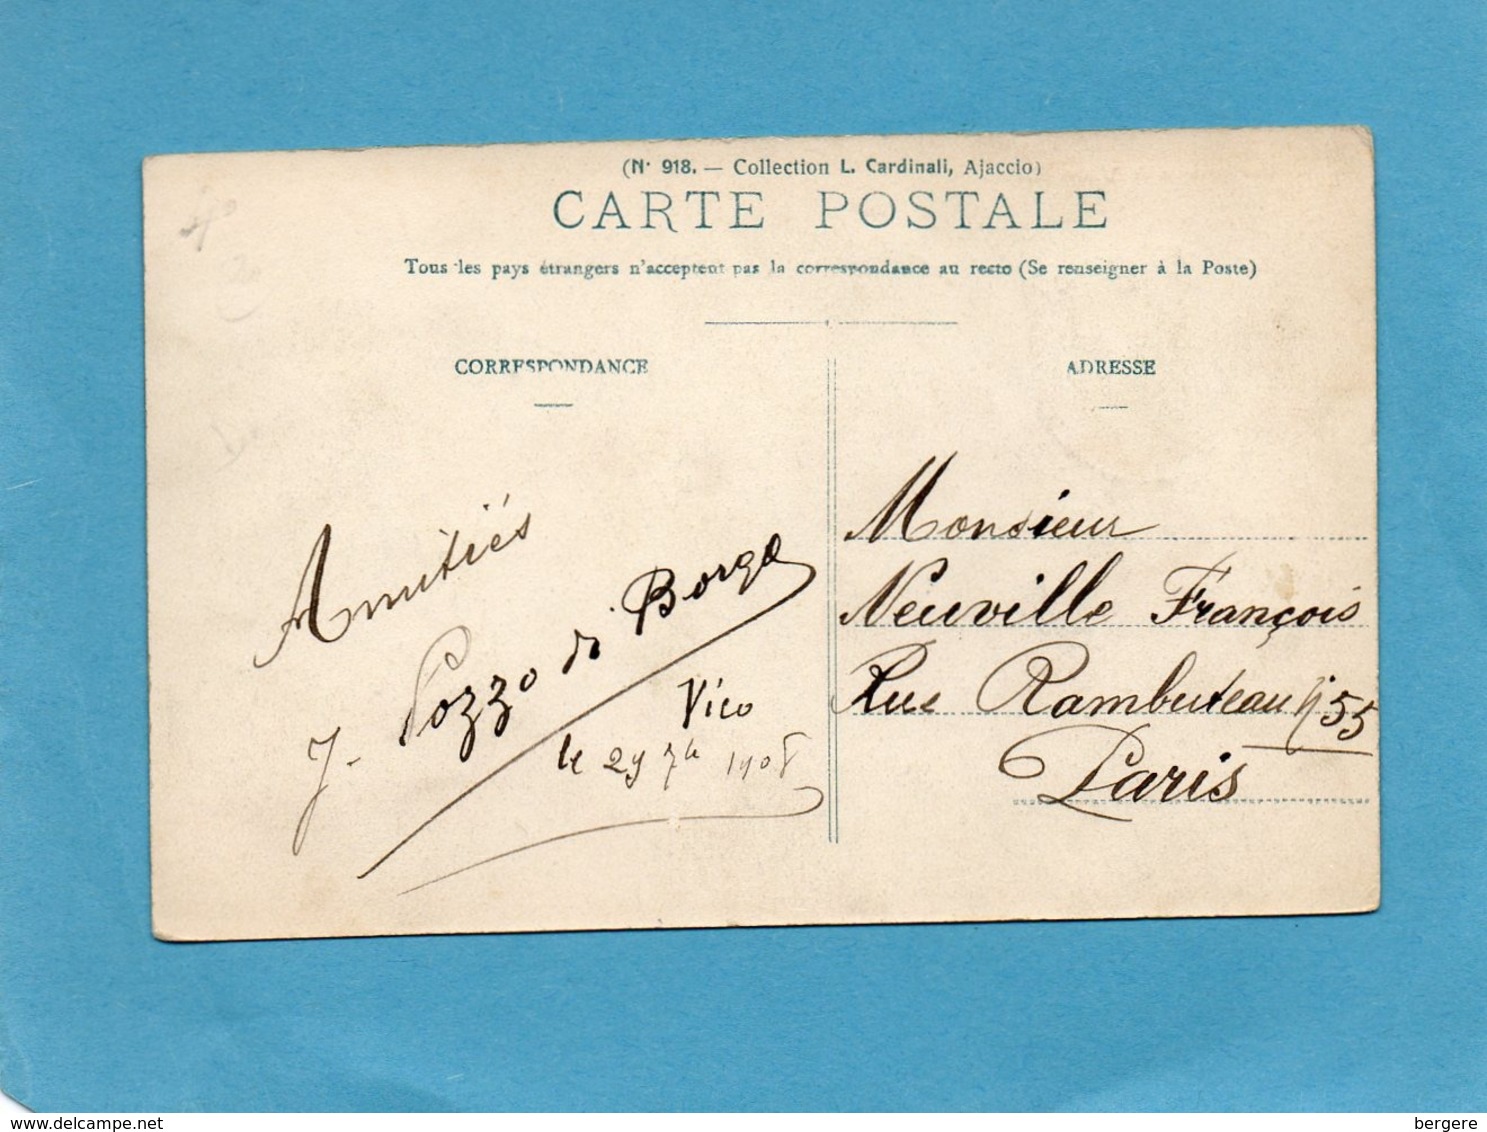 (N° 918. — Collection L. Cardinali, Ajaccio)
CARTE POSTALE
Tous les pays étrangers n'acceptent pas la correspondance au recto (Se renseigner à la Poste)
CORRESPONDANCE
Amitiés
J. Pozzo di Borgo
Vico
le 29 7bre 1908
ADRESSE
Monsieur
Neuville François
Rue Rambuteau n° 55
Paris
bergere